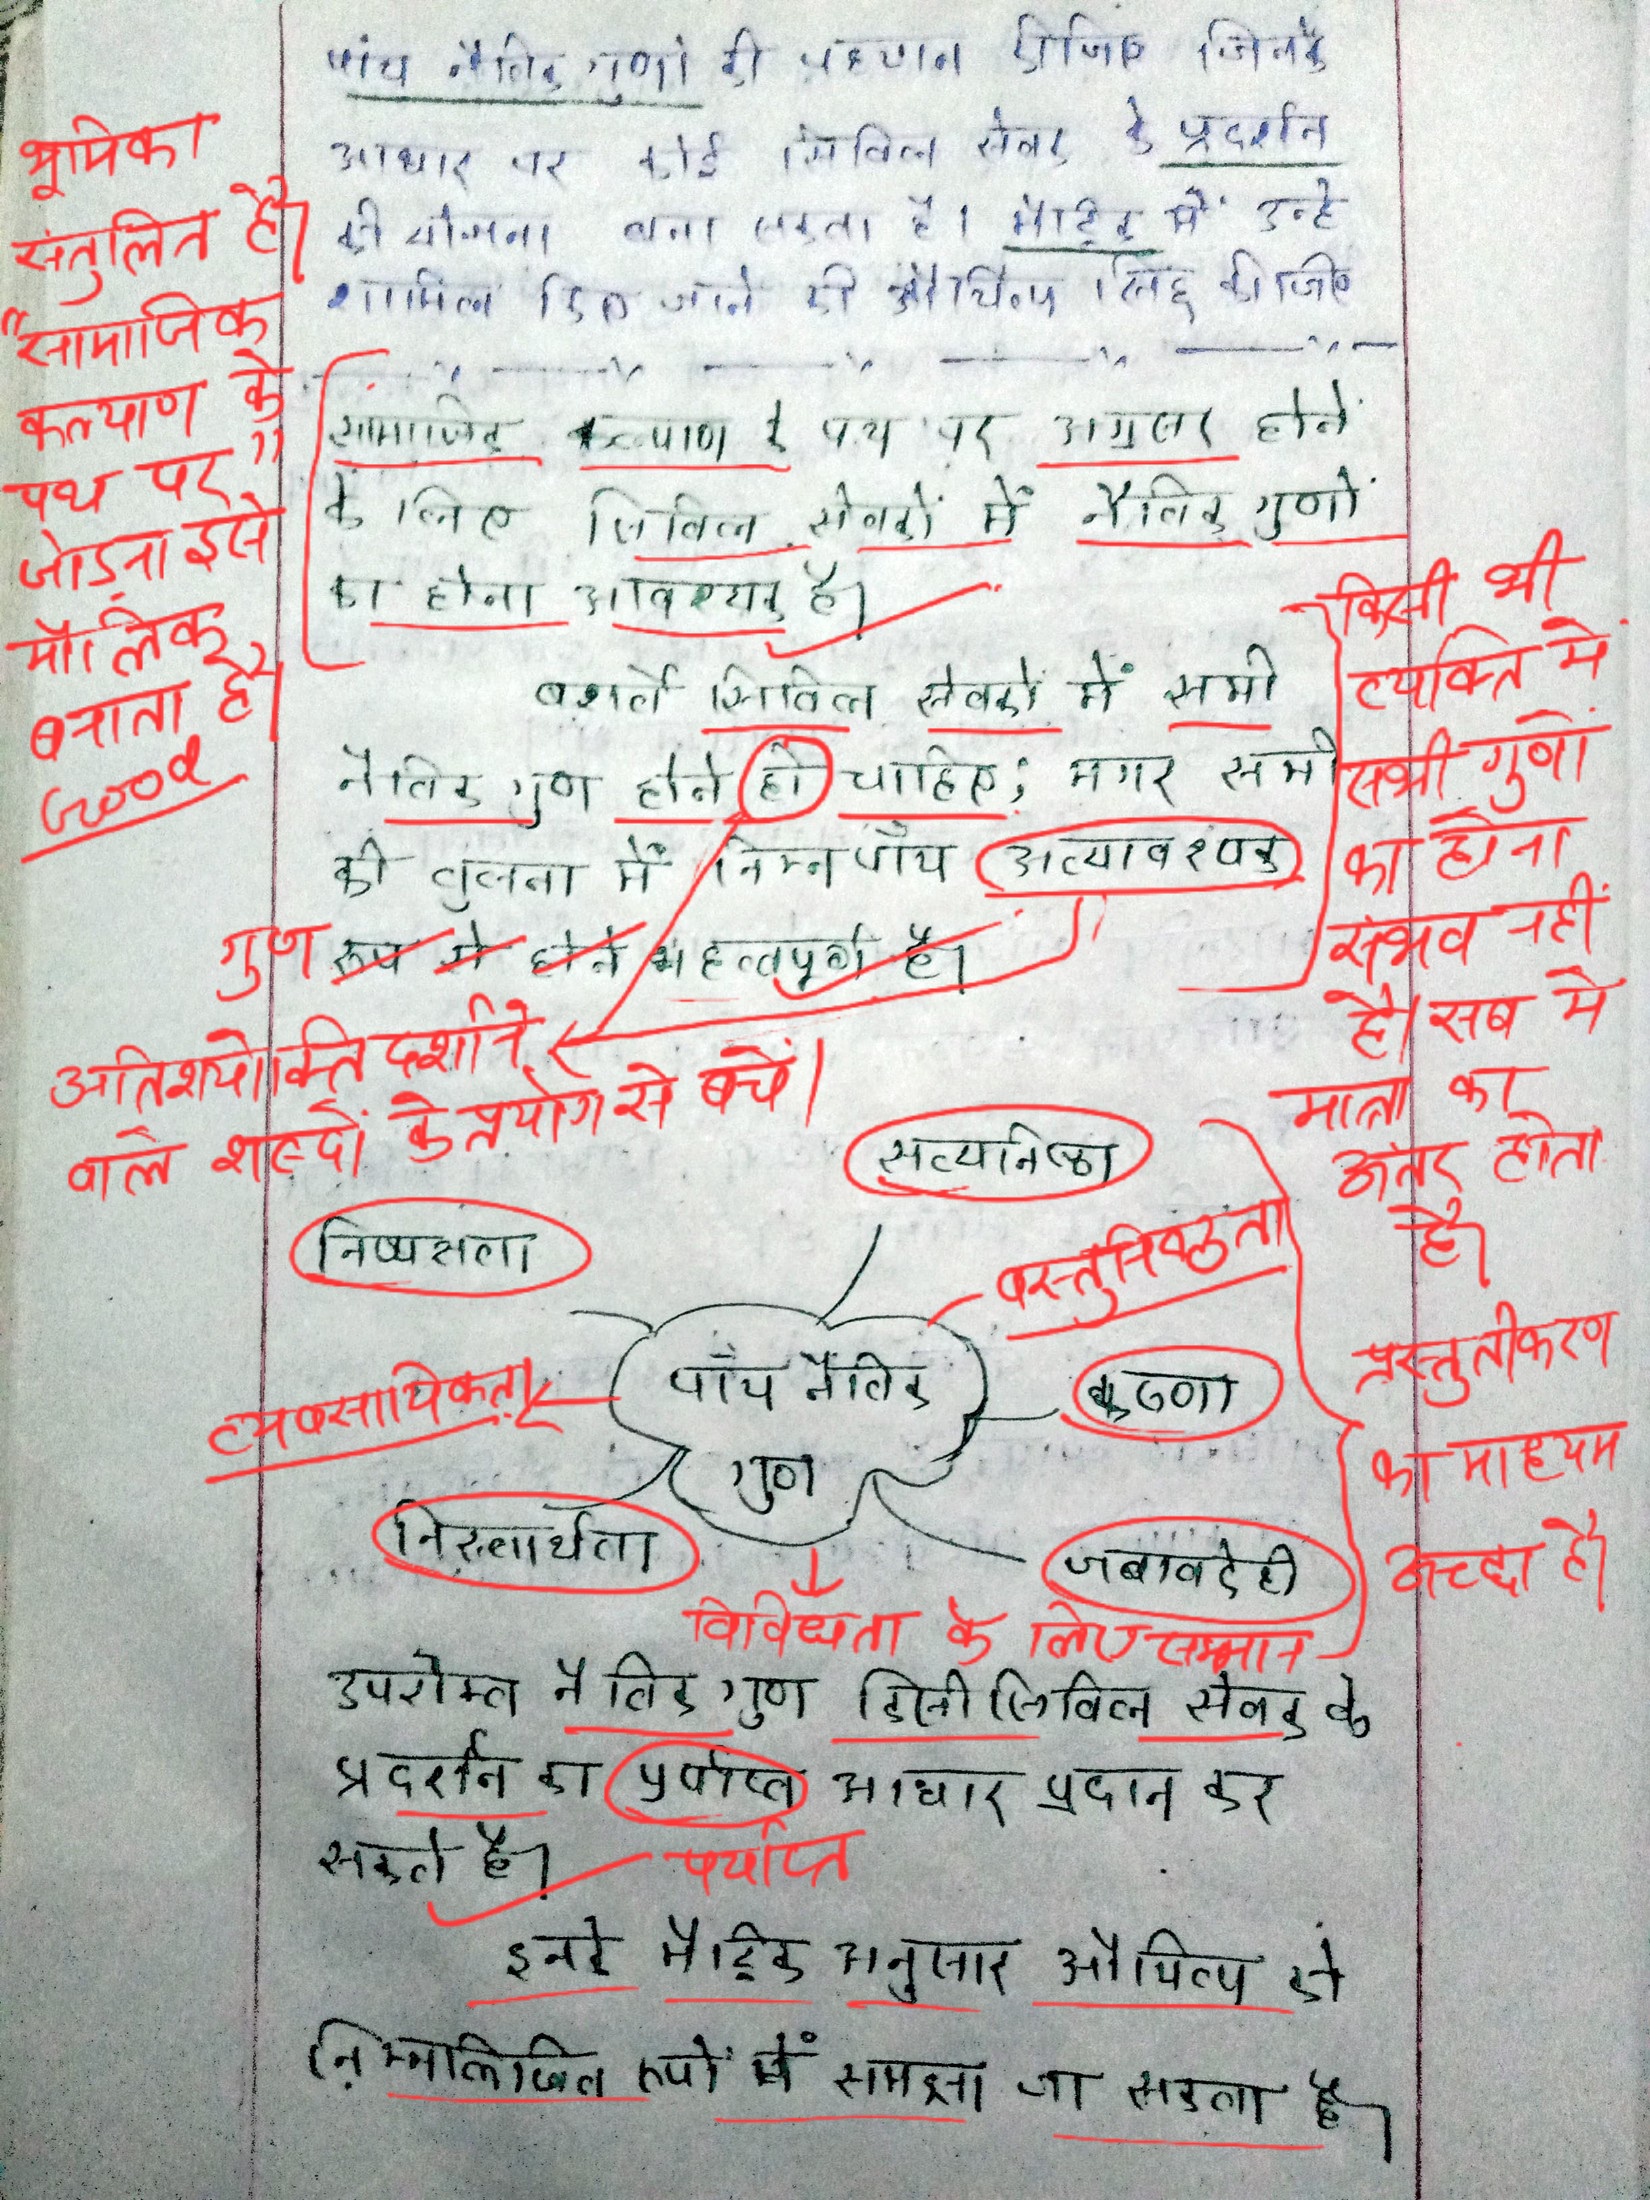 पांच नैतिक गुणों की पहचान कीजिए जिनके
आधार पर कोई सिविल सेवक के प्रदर्शन
की योजना बना सकता है। मैट्रिक में उन्हे
शामिल किए जाने की औचित्य सिद्ध कीजिए
भूमिका
संतुलित है।
"सामाजिक
कल्याण के
पथ पर"
जोड़ना इसे
मौलिक
बनाता है।
Good
सामाजिक कल्याण के पथ पर अग्रसर होने
के लिए सिविल सेवकों में नैतिक गुणों
का होना आवश्यक है।
बशर्ते सिविल सेवकों में सभी
नैतिक गुण होने ही चाहिए; मगर सभी
की तुलना में निम्न पाँच अत्यावश्यक
गुण रूप से होने महत्वपूर्ण है।
अतिशयोक्ति दर्शाने
वाले शब्दों के प्रयोग से बचें।
किसी भी
व्यक्ति में
सभी गुणों
का होना
संभव नहीं
है। सब में
मात्रा का
अंतर होता
है।
सत्यनिष्ठा
निष्पक्षता
वस्तुनिष्ठता
पाँच नैतिक
गुण
करुणा
व्यवसायिकता
निस्वार्थता
जबावदेही
विविधता के लिए सम्मान
प्रस्तुतीकरण
का माध्यम
अच्छा है।
उपरोक्त नैतिक गुण किसी सिविल सेवक के
प्रदर्शन का प्रर्याप्त आधार प्रदान कर
सकते है।
पर्याप्त
इनके मैट्रिक अनुसार औचित्य को
निम्नलिखित रुपों में समझा जा सकता है।